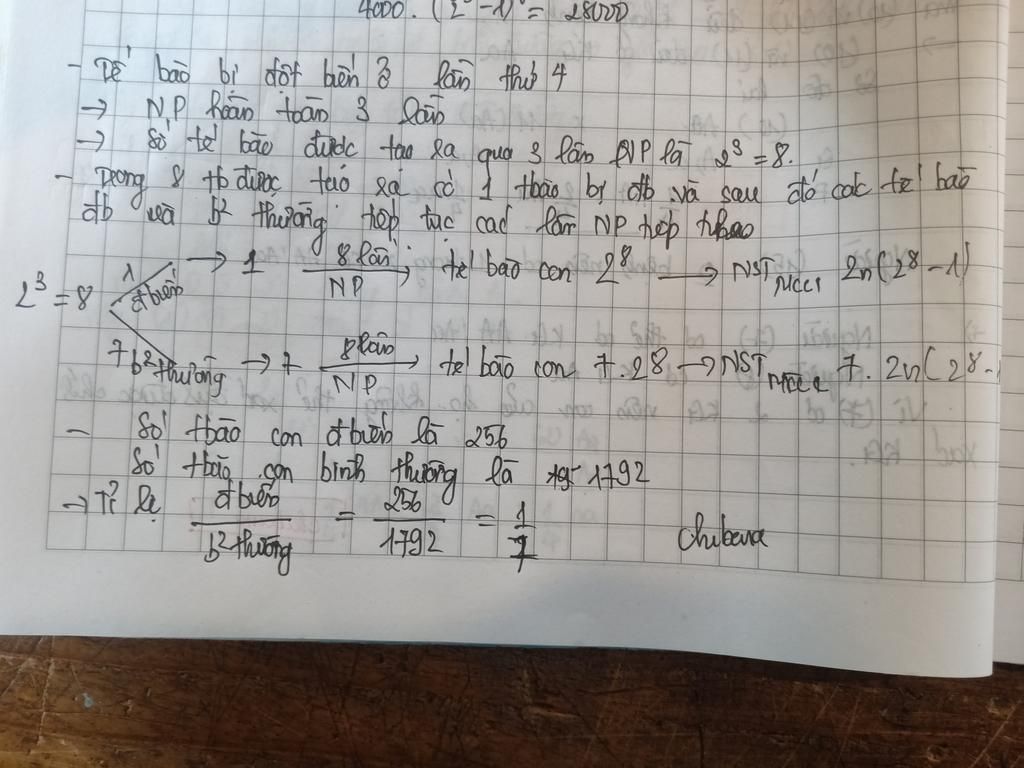 4000. (2³ - 1) = 28000
- Tế bào bị đột biến ở lần thứ 4
→ NP hoàn toàn 3 lần
→ Số tế bào được tạo ra qua 3 lần NP là 2³ = 8.
- Trong 8 tb được tạo ra có 1 tbào bị đb và sau đó các tế bào
đb và b² thường tiếp tục các lần NP tiếp theo
2³ = 8 1 đbiến → 1 8 lần NP → tế bào con 2⁸ → NST Mtcc 2n(2⁸ - 1)
7 b² thường → 7 8 lần NP → tế bào con 7. 2⁸ → NST Mtcc 7. 2n(2⁸ -
- Số tbào con đbiến là 256
Số tbào con bình thường là 1792
→ Tỉ lệ đbiến / b² thường = 256 / 1792 = 1 / 7